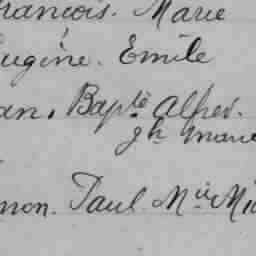 François. Marie
Eugène. Emile
Bapte Alfred.
gh Marie
Paul Mie